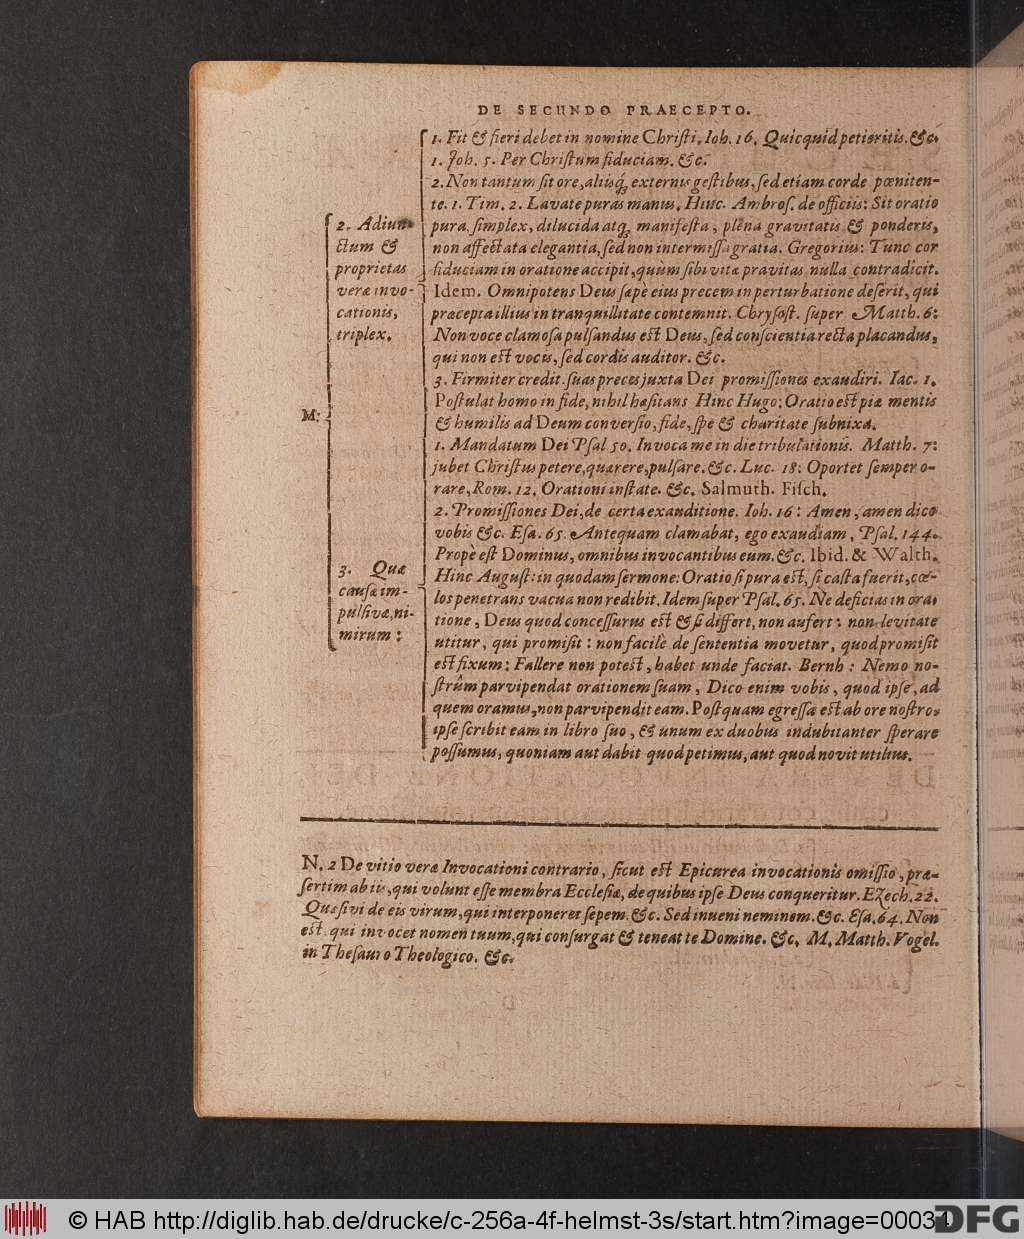 DE SECUNDO PRAECEPTO.
M:
2. Adiun-
ctum &
proprietas
veræ invo-
cationis,
triplex.
1. Fit & fieri debet in nomine Christi. Ioh. 16. Quicquid petieritis. &c.
1. Joh. 5. Per Christum fiduciam. &c.
2. Non tantum sit ore, aliisq; externis gestibus, sed etiam corde pœniten-
te. 1. Tim. 2. Lavate puras manus. Hinc. Ambros. de officiis: Sit oratio
pura simplex, dilucida atq; manifesta, plena gravitatis & ponderis,
non affectata elegantia, sed non intermissa gratia. Gregorius: Tunc cor
fiduciam in oratione accipit, quum sibi vitæ pravitas nulla contradicit.
Idem. Omnipotens Deus sæpè eius precem in perturbatione deserit, qui
præcepta illius in tranquillitate contemnit. Chrysost. super Matth. 6:
Non voce clamosa pulsandus est Deus, sed conscientia recta placandus,
qui non est vocis, sed cordis auditor. &c.
3. Firmiter credit suas preces juxta Dei promissiones exaudiri. Iac. 1.
Postulat homo in fide, nihil hæsitans Hinc Hugo: Oratio est piæ mentis
& humilis ad Deum conversio, fide, spe & charitate subnixa.
3. Quæ
causæ im-
pulsivæ, ni-
mirum:
1. Mandatum Dei Psal 50. Invoca me in die tribulationis. Matth. 7:
jubet Christus petere, quærere, pulsare. &c. Luc. 18: Oportet semper o-
rare, Rom. 12. Orationi instate. &c. Salmuth. Fisch.
2. Promissiones Dei, de certa exauditione. Ioh. 16: Amen, amen dico
vobis &c. Esa. 65. Antequam clamabat, ego exaudiam. Psal. 144.
Propè est Dominus, omnibus invocantibus eum. &c. Ibid. & Walth.
Hinc August: in quodam sermone: Oratio si pura est, si casta fuerit, cœ-
los penetrans vacua non redibit. Idem super Psal. 65. Ne deficias in ora-
tione, Deus quod concessurus est & si differt, non aufert: non levitate
utitur, qui promisit: non facilè de sententia movetur, quod promisit
est fixum: Fallere non potest, habet unde faciat. Bernh: Nemo no-
strûm parvipendat orationem suam, Dico enim vobis, quod ipse, ad
quem oramus, non parvipendit eam. Postquam egressa est ab ore nostro,
ipse scribit eam in libro suo, & unum ex duobus indubitanter sperare
possumus, quoniam aut dabit quod petimus, aut quod novit utilius.
N. 2 De vitio veræ Invocationi contrario, sicut est Epicurea invocationis omissio, præ-
sertim ab iis, qui volunt esse membra Ecclesiæ, de quibus ipse Deus conqueritur. Ezech. 22.
Quæsivi de eis virum, qui interponeret sepem. &c. Sed inueni neminem. &c. Esa. 64. Non
est qui invocet nomen tuum, qui consurgat & teneat te Domine. &c. M. Matth. Vogel.
in Thesauro Theologico. &c.
© HAB http://diglib.hab.de/drucke/c-256a-4f-helmst-3s/start.htm?image=00034
DFG